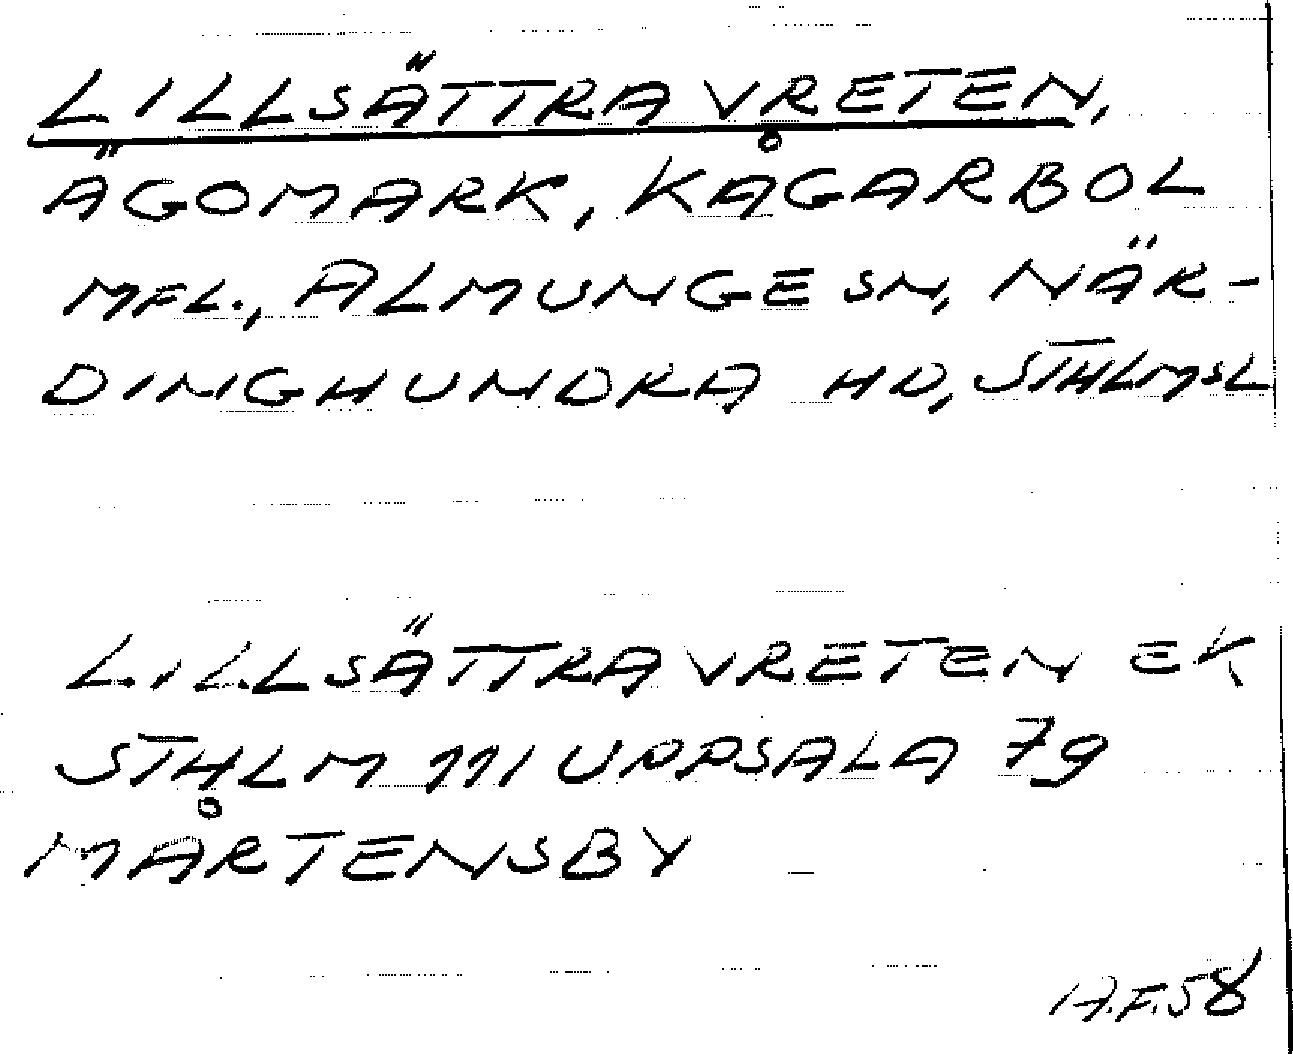 LILLSÄTTRAVRETEN,
ÄGOMARK, KÅGARBOL
MFL., ALMUNGE SN, NÄR-
DINGHUNDRA HD, STHLMSL
LILLSÄTTRAVRETEN EK
STHLM 111 UPPSALA 79
MÅRTENSBY
A.F.58